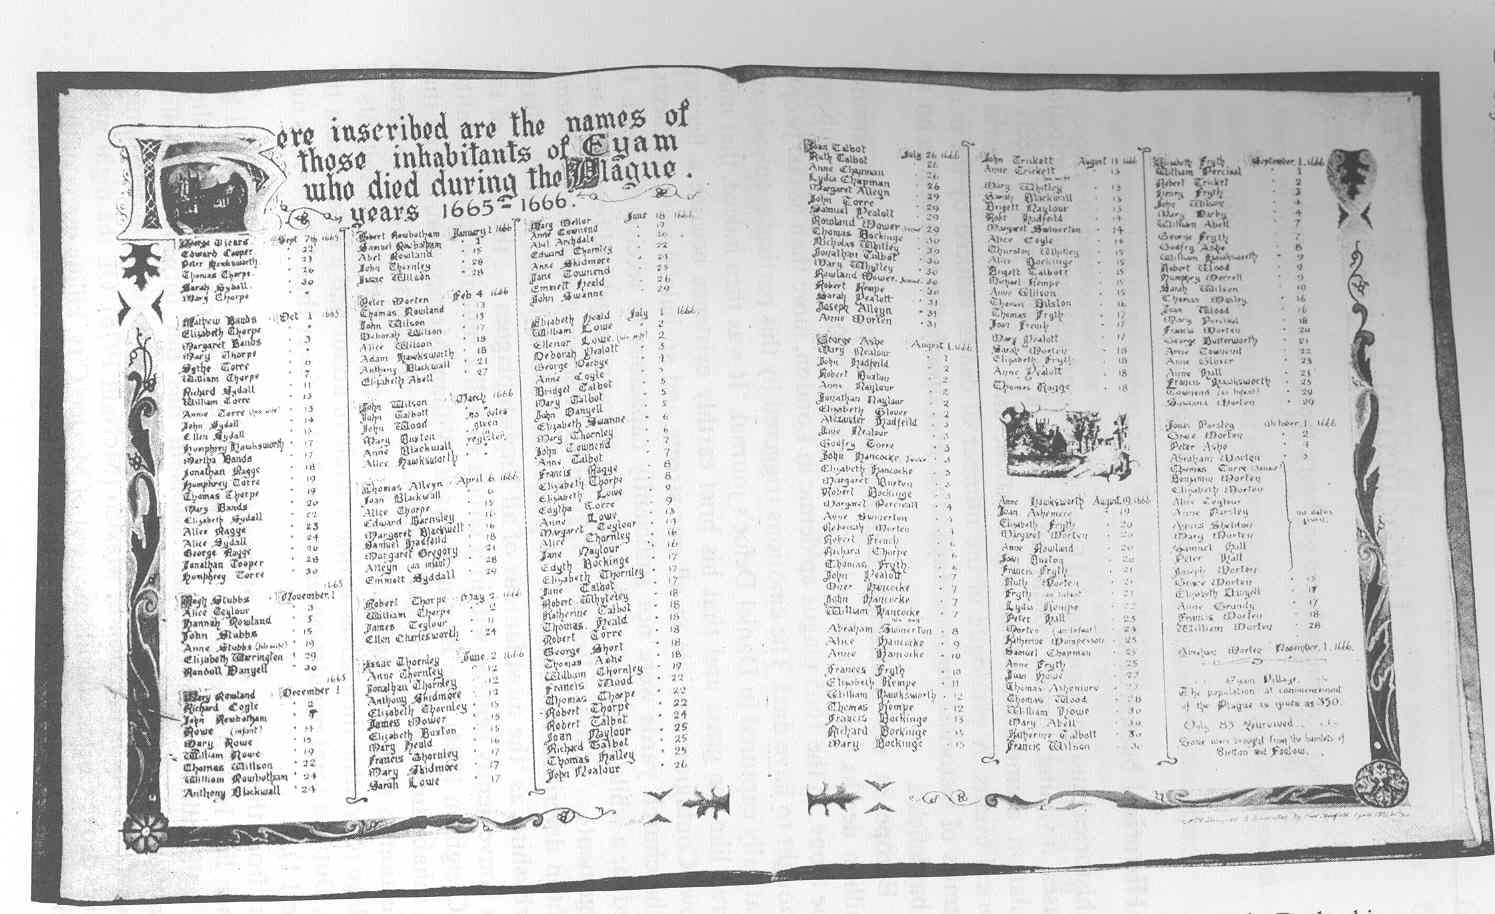 Here inscribed are the names of
those inhabitants of Eyam
who died during the Plague.
years 1665 - 1666.
George Vicars Sept 7th 1665
Edward Cooper
Peter Hawksworth 23
Thomas Thorpe 26
Sarah Sydall 30
Mary Thorpe
Mathew Bands Oct 1 1665
Elizabeth Thorpe
Margaret Bands 3
Mary Thorpe
Sythe Torre 6
William Thorpe 7
Richard Sydall 11
William Torre 13
Annie Torre (his wife) 13
John Sydall 14
Ellen Sydall
Humphrey Hawksworth 17
Martha Bands 17
Jonathan Ragge 18
Humphrey Torre 19
Thomas Thorpe 19
Mary Bands 20
Elizabeth Sydall 22
Alice Ragge 23
Alice Sydall 24
George Ragge 26
Jonathan Cooper 28
Humphrey Torre 30
1665
Hugh Stubbs November 1
Alice Teylour 3
Hannah Rowland 5
John Stubbs 15
Anne Stubbs (his wife) 19
Elizabeth Warrington 29
Randoll Danyell 30
1665
Mary Rowland December 1
Richard Coyle 2
John Rowbotham
Rowe (infant) 14
Mary Rowe 15
William Rowe 19
Thomas Willson 22
William Rowbotham 24
Anthony Blackwall 24
Robert Rowbotham January 1 1666
Samuel Rowbotham 1
Abel Rowland 15
John Thornley 28
Isaac Wilson 28
Peter Morten Feb 4 1666
Thomas Rowland 13
John Wilson 15
Deborah Wilson 17
Alice Wilson 18
Adam Hawksworth 18
Anthony Blackwall 21
Elizabeth Abell 27
John Wilson March 1666
John Talbott no dates
John Wood given
Mary Buxton register.
Anne Blackwall
Alice Hawksworth
Thomas Alleyn April 6 1666
Joan Blackwall 6
Alice Thorpe 15
Edward Barnsley 16
Margaret Blackwell 16
Samuel Hadfeild 18
Margaret Gregory 21
Alleyn (an infant) 28
Emmott Syddall 29
Robert Thorpe May 2 1666
William Thorpe 2
James Teylour 11
Ellen Charlesworth 24
Isaac Thornley June 2 1666
Anne Thornley 12
Jonathan Thornley 12
Anthony Skidmore 12
Elizabeth Thornley 15
James Mower 15
Elizabeth Buxton 15
Mary Heald 16
Francis Thornley 17
Mary Skidmore 17
Sarah Lowe 17
Mary Mellor June 18 1666
Anne Townend 17
Abel Archdale
Edward Thornley 22
Anne Skidmore 24
Jane Townend 25
Emmett Heald 26
John Swanne 29
Elizabeth Heald July 1 1666
William Lowe 2
Ellenor Lowe (his wife) 2
Deborah Pealott 3
George Darbye 4
Anne Coyle 5
Bridget Talbot 5
Mary Talbot 5
John Danyell 5
Elizabeth Swanne 6
Mary Thornley 6
John Townend 7
Anne Talbot 7
Francis Ragge 8
Elizabeth Thorpe 8
Elizabeth Lowe 9
Edytha Torre 9
Anne Lowe 13
Margaret Teylour 14
Alice Thornley 16
Jane Naylour 16
Edyth Bockinge 17
Elizabeth Thornley 17
Jane Talbot 17
Robert Whyteley 18
Katherine Talbot 18
Thomas Heald 18
Robert Torre 18
George Short 18
Thomas Ashe 18
William Thornley 19
Francis Wood 22
Thomas Thorpe 22
Robert Thorpe 22
Robert Talbot 24
Joan Naylour 25
Richard Talbot 25
Thomas Halley 25
John Nealour 26
Joan Talbot July 26 1666
Ruth Talbot 26
Anne Chapman 26
Lydia Chapman 26
Margaret Alleyn 29
John Torre 29
Samuel Pealott 29
Rowland Mower 29
Thomas Bockinge 30
Nicholas Whitley 30
Jonathan Talbot 30
Mary Whytley 30
Rowland Mower 30
Robert Kempe 30
Sarah Pealott 31
Joseph Alleyn 31
Anne Morten 31
George Ashe August 1 1666
Mary Nealour 1
John Hadfeild 2
Robert Buxton 2
Anne Naylour 2
Jonathan Naylour 2
Elizabeth Glover 2
Alexander Hadfeild 3
Jane Nealour 3
Godfrey Torre 3
John Hancocke 3
Elizabeth Hancocke 3
Margaret Buxton 3
Robert Bockinge 3
Margaret Percivall 4
Anne Swinerton 4
Rebeccah Morten 4
Robert French 6
Richard Thorpe 6
Thomas Fryth 6
John Pealott 7
Oner Hancocke 7
John Hancocke 7
William Hancocke 7
Abraham Swinerton 8
Alice Hancocke 9
Anne Hancocke 10
Frances Fryth 10
Elizabeth Kempe 11
William Hawksworth 12
Thomas Kempe 12
Francis Bockinge 13
Richard Bockinge 13
Mary Bockinge 13
John Trickett August 13 1666
Anne Trickett 13
Mary Whitley 13
Sarah Blackwall 13
Brigett Naylour 13
Robt Hadfeild 14
Margaret Swinerton 14
Alice Coyle 14
Thurston Whitley 15
Alice Bockinge 15
Brigett Talbott 15
Michael Kempe 15
Anne Wilson 15
Thomas Bilston 16
Thomas Fryth 17
Joan French 17
Mary Pealott 17
Sarah Morten 18
Elizabeth Fryth 18
Anne Pealott 18
Thomas Ragge 18
Anne Hawksworth August 19 1666
Joan Ashemore 19
Elizabeth Fryth 20
Margaret Morten 20
Anne Rowland 20
Joan Buxton 20
Francis Fryth 21
Ruth Morten 21
Fryth (an infant) 22
Lydia Kempe 22
Peter Hall 23
Morten (an infant) 24
Katherine 25
Samuel Chapman 25
Anne Fryth 25
Joan Howe 27
Thomas Ashemore 27
Thomas Wood 28
William Howe 30
Mary Abell 30
Katherine Talbott 30
Francis Wilson 30
Elizabeth Fryth September 1 1666
William Percival 1
Robert Trickett 2
Henry Fryth 3
John Wilson 4
Mary Darby 4
William Abell 7
George Fryth 7
Godfrey Ashe 8
William Hawksworth 9
Robert Wood 9
Humphrey Merrell 9
Sarah Wilson 10
Thomas Mozley 16
Joan Wood 16
Mary Percival 18
Francis Morten 20
George Butterworth 21
Anne Townend 22
Anne Glover 23
Anne Hall 23
Francis Hawksworth 23
Townend (an infant) 29
Susanna Morten 29
James Parsley October 1 1666
Grace Morten 2
Peter Ashe 4
Abraham Morten 5
Thomas Torre
Benjamin Morten
Elizabeth Morten
Alice Teylour
Anne Parsley no dates
Agnes Sheldon given
Mary Morten
Samuel Hall
Peter Hall
Joseph Morten
Grace Morten
Elizabeth Danyell 17
Anne Grundy 17
Francis Morten 18
William Morten 28
Abraham Morten November 1 1666
Eyam Village.
The population at commencement
of the Plague is quote as 350.
Only 83 Survived.
Some were brought from the hamlets of
Bretton and Foolow.